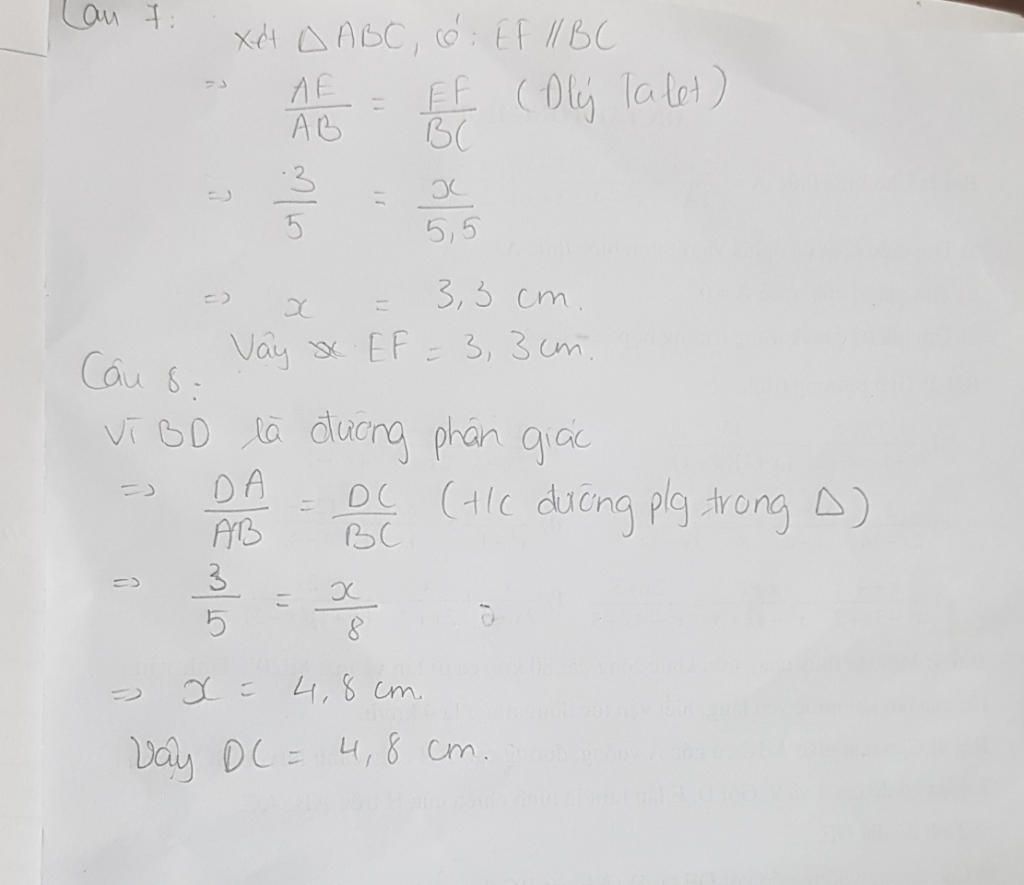 Câu 7:
xét △ABC, có: EF // BC
=> AE/AB = EF/BC (Đlý Talet)
=> 3/5 = x/5,5
=> x = 3,3 cm.
Vậy EF = 3,3 cm.
Câu 8:
Vì BD là đường phân giác
=> DA/AB = DC/BC (t/c đường p/g trong △)
=> 3/5 = x/8
=> x = 4,8 cm.
Vậy DC = 4,8 cm.